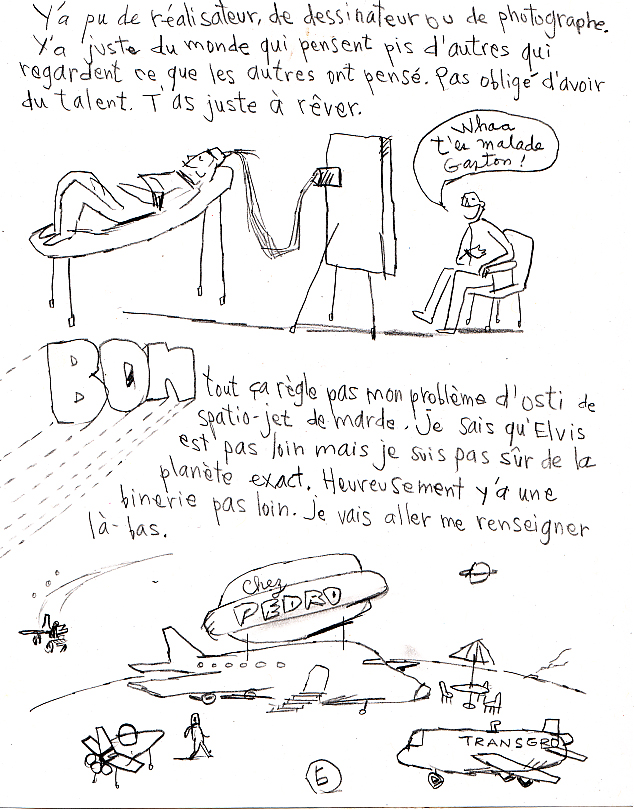 Y'a pu de réalisateur, de dessinateur ou de photographe.
Y'a juste du monde qui pensent pis d'autres qui
regardent ce que les autres ont pensé. Pas obligé d'avoir
du talent. T'as juste à rêver.
Whaa
t'es malade
Gaston!
BON
tout ça règle pas mon problème d'osti de
spatio-jet de marde. Je sais qu'Elvis
est pas loin mais je suis pas sûr de la
planète exact. Heureusement y'a une
binerie pas loin. Je vais aller me renseigner
là-bas.
Chez
PEDRO
TRANSGRO
5